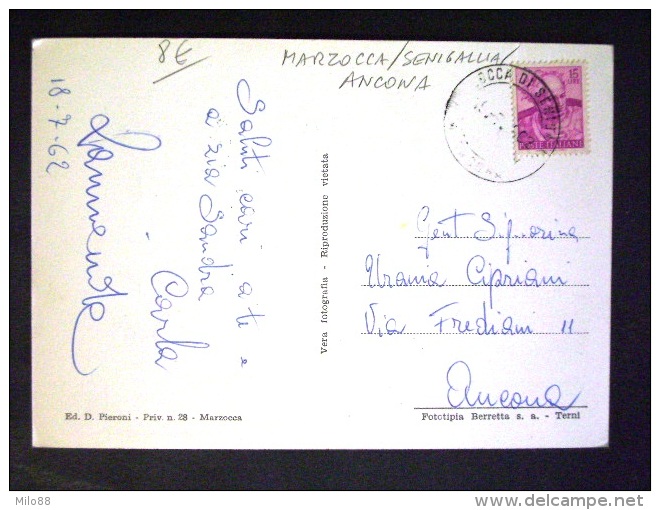 8€
MARZOCCA/SENIGALLIA/
ANCONA
18-7-62
Saluti cari a te e
a zia Sandra
Carla
Vera fotografia - Riproduzione vietata
OCCA DI SENI
15
LIRE
POSTE ITALIANE
Gent Signorina
Urania Cipriani
Via Frediani 11
Ancona
Ed. D. Pieroni - Priv. n. 28 - Marzocca
Fototipia Berretta s. a. - Terni
Milo88
http://www.delcampe.net